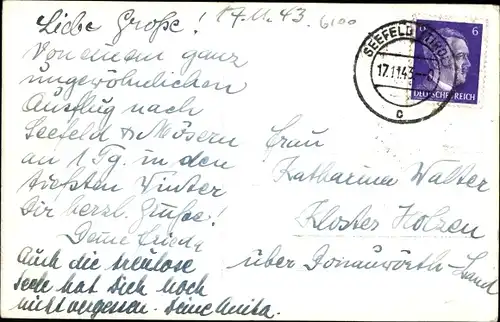 Liebe Große! 17.11.43. 6100
Von einem ganz
ungewöhnlichen
Ausflug nach
Seefeld u. Mösern
an 1 Tg. in den
tiefsten Winter
Dir herzl. Grüße!
Deine
Auch die treulose
Seele hat Dich noch
nicht vergessen. Deine Anita.
SEEFELD (TIROL)
17.11.43
c
6
DEUTSCHES REICH
Frau
Katharina Walter
Kloster Holzen
über Donauwörth-Land